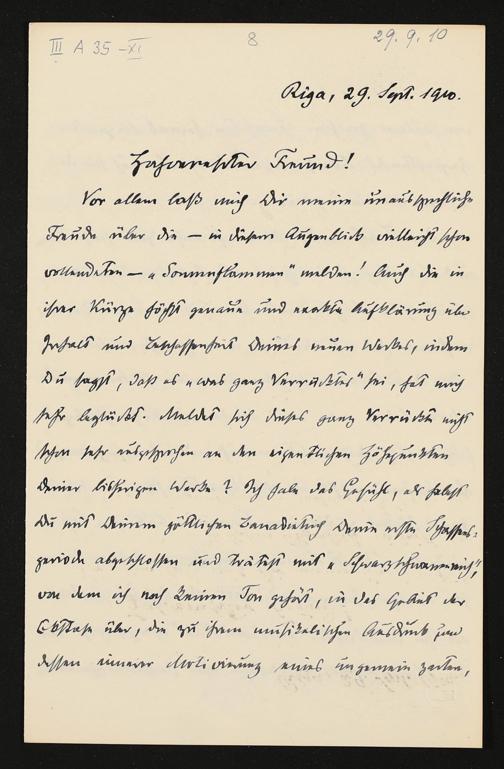 III A 35 – XI
8
29. 9. 10
Riga, 29. Sept. 1910.
Hochverehrter Freund!
Vor allem laß mich Dir meine unaussprechliche
Freude über die – in diesem Augenblick vielleicht schon
vollendeten – „Sonnenflammen" melden! Auch die in
ihrer Kürze höchst genaue und exakte Aufklärung über
Gehalt und Beschaffenheit Deines neuen Werkes, indem
Du sagst, daß es „was ganz Verrücktes" sei, hat mich
sehr beglückt. Meldet sich dieses ganz Verrückte nicht
schon sehr ausgesprochen an den eigentlichen Höhepunkten
Deiner bisherigen Werke? Ich habe das Gefühl, als habest
Du mit Deinem göttlichen Banadietrich Deine erste Schaffens-
periode abgeschlossen und trätest mit „Schwarzschwanenreich",
von dem ich noch keinen Ton gehört, in das Gebiet der
Ekstase über, die zu ihrem musikalischen Ausdruck und
dessen innerer Motivierung eines ungemein zarten,